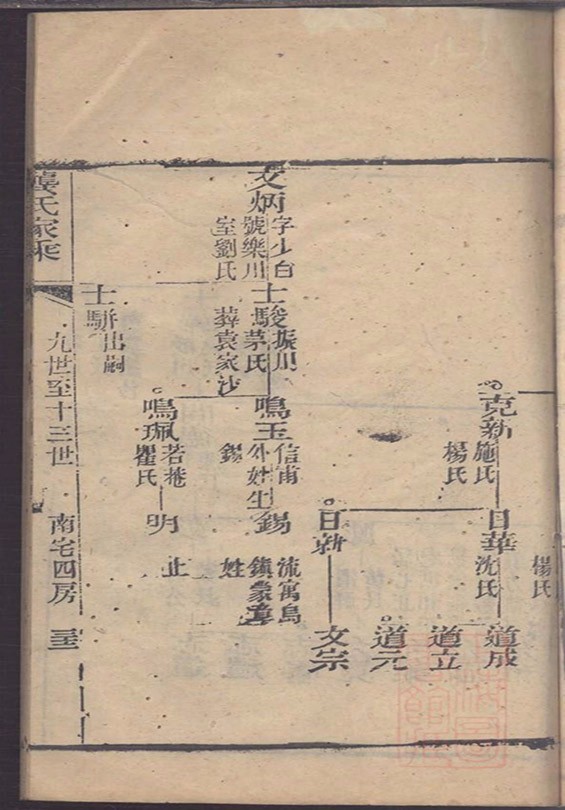 楊氏
克新
施氏
楊氏
日華
沈氏
道成
道立
道元
文宗
文炳
字少台
號樂川
室劉氏
士駿
振川
茅氏
葬袁家沙
鳴玉
信甫
外姓生
錫
錫
流寓烏
鎮蒙章
姓
鳴珮
若捲
瞿氏
明
止
士駢
出嗣
龔氏家乘
九世至十三世
南宅四房